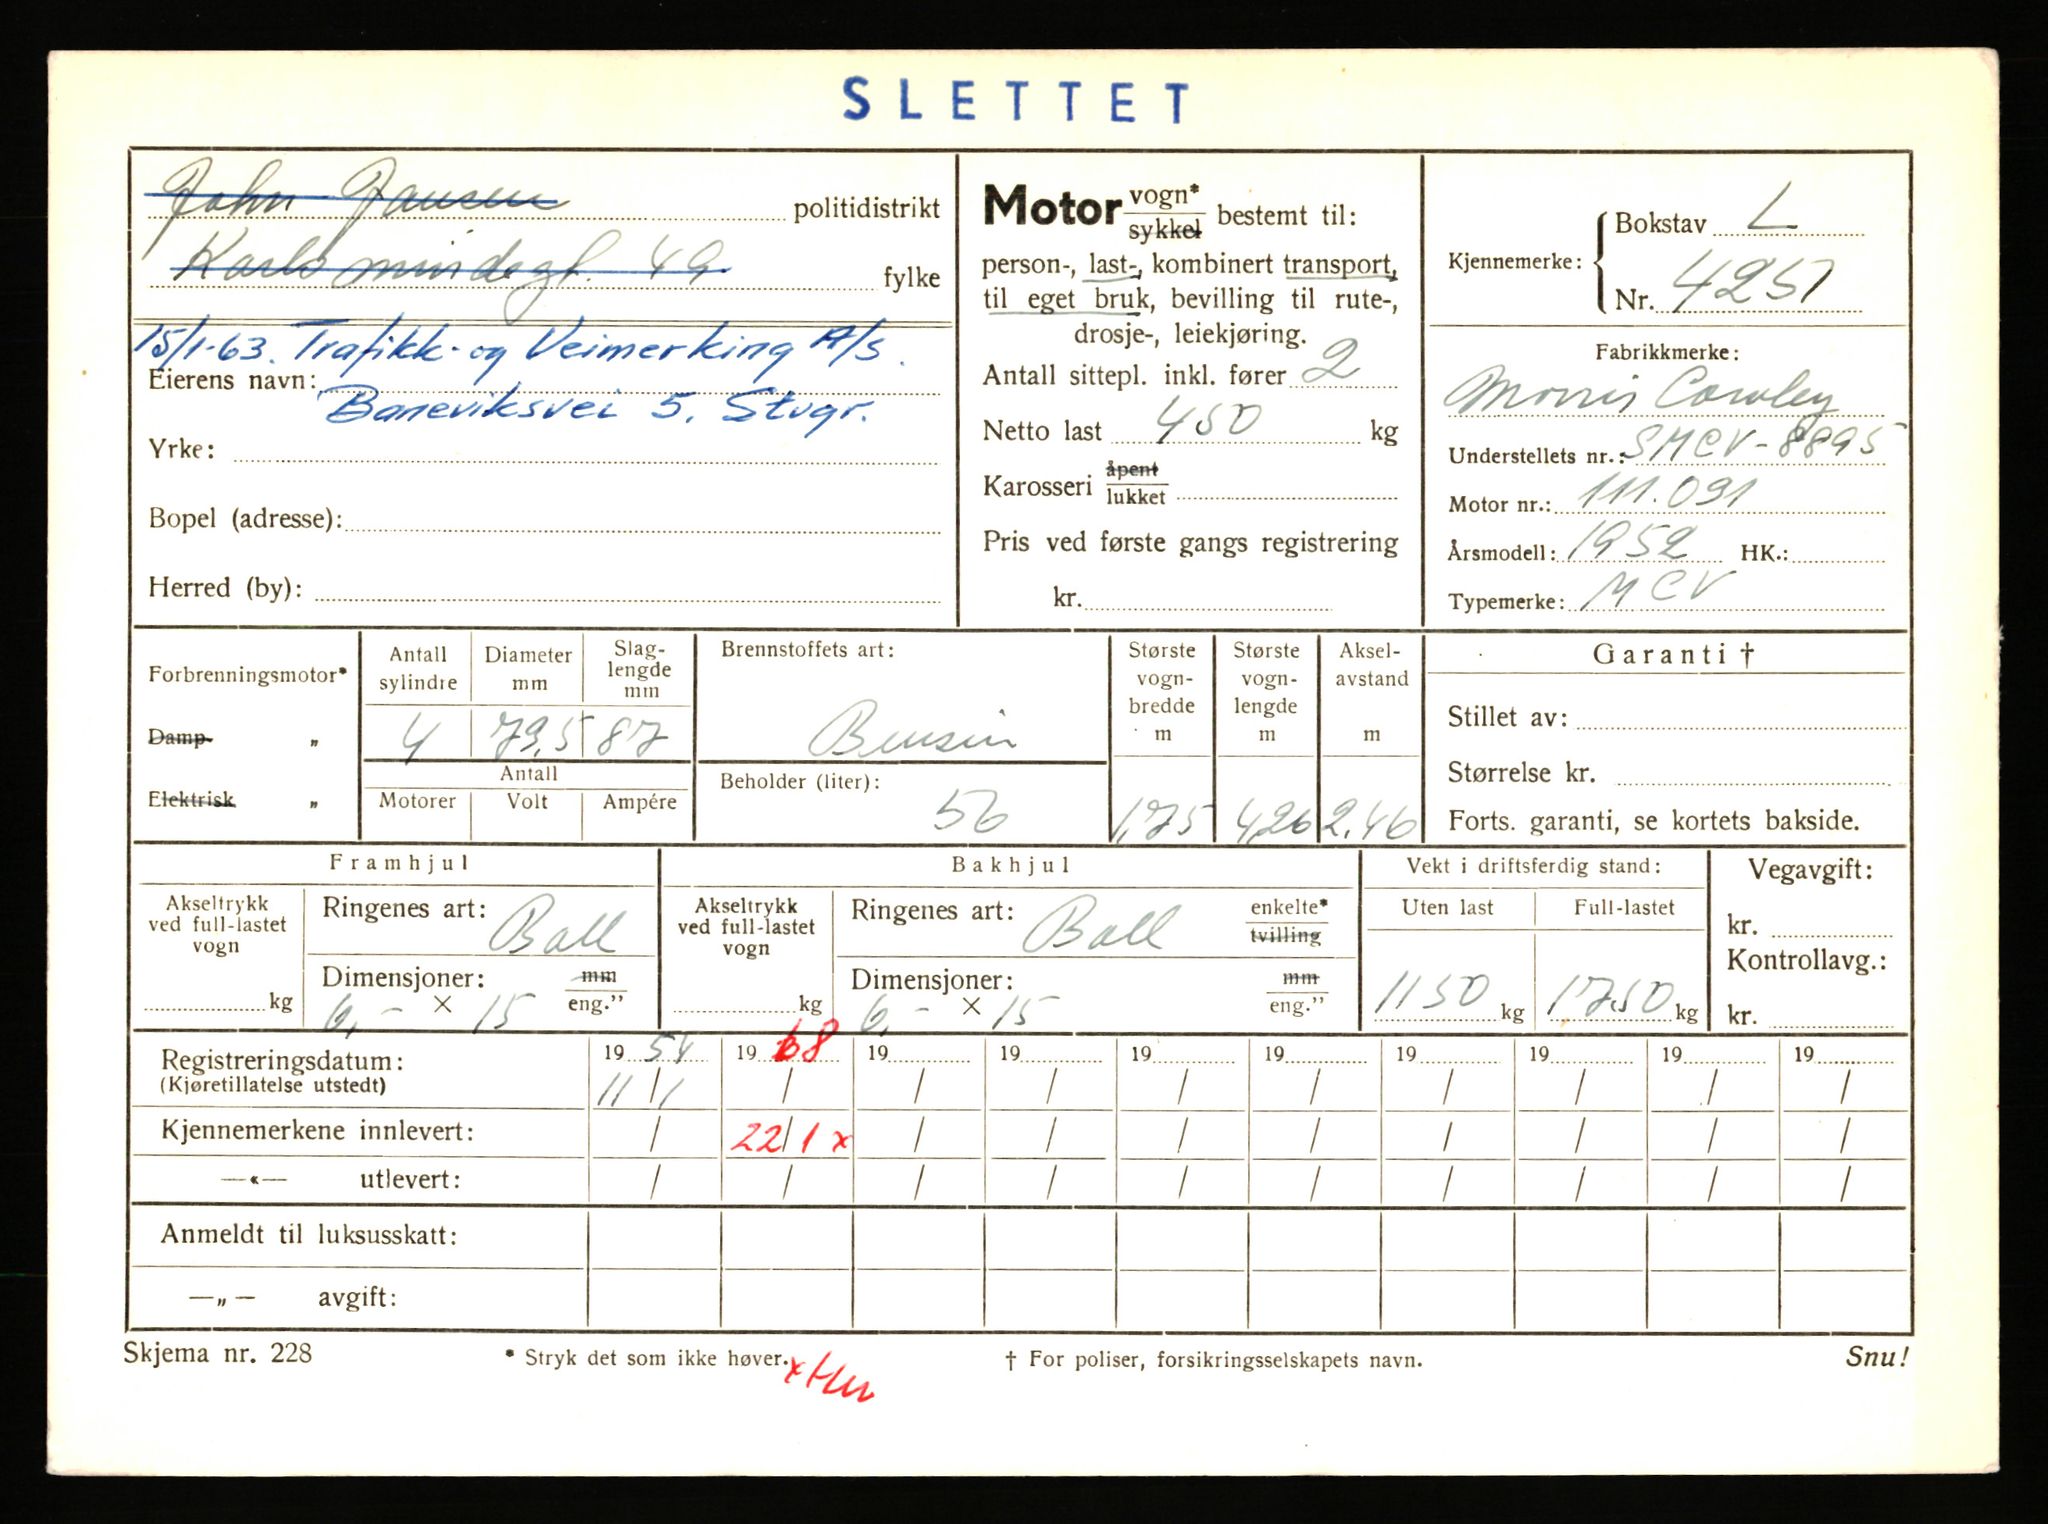 SLETTET
John Jansen politidistrikt
Karlsmindegt. 49 fylke
15/1-63. Trafikk- og Veimerking A/S.
Eierens navn:
Baneviksvei 5. Stvgr.
Yrke:
Bopel (adresse):
Herred (by):
Motor vogn* sykkel bestemt til:
person-, last-, kombinert transport,
til eget bruk, bevilling til rute-,
drosje-, leiekjøring.
Antall sittepl. inkl. fører 2
Netto last 450 kg
Karosseri åpent lukket
Pris ved første gangs registrering
kr.
Kjennemerke: Bokstav L
Nr. 4251
Fabrikkmerke:
Morris Cowley
Understellets nr.: SMCV-8895
Motor nr.: 111.091
Årsmodell: 1952 HK.:
Typemerke: MCV
Forbrenningsmotor*
Damp- „
Elektrisk „
Antall sylindre
Diameter mm
Slag-lengde mm
4 79,5 87
Antall
Motorer Volt Ampére
Brennstoffets art:
Bensin
Beholder (liter):
56
Største vogn-bredde m
1,75
Største vogn-lengde m
4,26
Aksel-avstand m
2.46
Garanti †
Stillet av:
Størrelse kr.
Forts. garanti, se kortets bakside.
Framhjul
Akseltrykk ved full-lastet vogn
kg
Ringenes art: Ball
Dimensjoner: mm eng.”
6,- × 15
Bakhjul
Akseltrykk ved full-lastet vogn
kg
Ringenes art: Ball enkelte* tvilling
Dimensjoner: mm eng.”
6,- × 15
Vekt i driftsferdig stand:
Uten last Full-lastet
1150 kg 1750 kg
Vegavgift:
kr.
Kontrollavg.:
kr.
Registreringsdatum: 19 54 19 68 19 19 19 19 19 19 19 19
(Kjøretillatelse utstedt) 11/1 / / / / / / / / /
Kjennemerkene innlevert: / 22/1 x / / / / / / / /
—«— utlevert: / / / / / / / / / /
Anmeldt til luksusskatt:
—„— avgift:
Skjema nr. 228 * Stryk det som ikke høver. † For poliser, forsikringsselskapets navn. Snu!